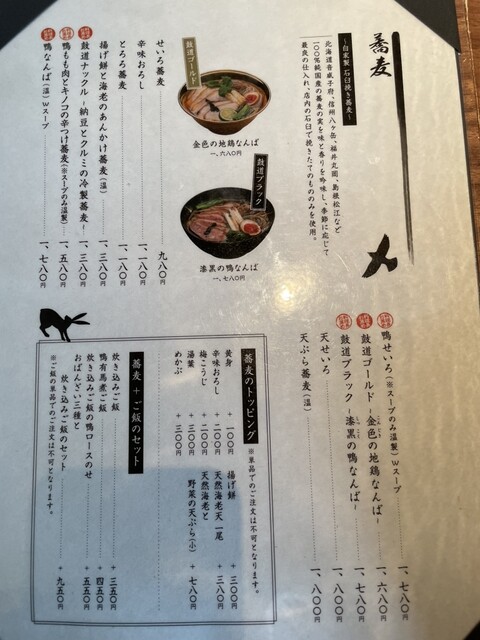 蕎麦
～自家製 石臼挽き蕎麦～
北海道音威子府、信州八ヶ岳、福井丸岡、島根松江など
一〇〇％純国産の蕎麦の実を味と香りを吟味し、季節に応じて
最良の仕入れ、店内の石臼で挽きたてのもののみを使用。
鼓道ゴールド
金色の地鶏なんば
一、六八〇円
鼓道ブラック
漆黒の鴨なんば
一、七八〇円
せいろ蕎麦 九八〇円
辛味おろし 一、一八〇円
とろろ蕎麦 一、一八〇円
揚げ餅と海老のあんかけ蕎麦（温） 一、三八〇円
鼓道ナックル -納豆とクルミの冷製蕎麦- 一、三八〇円
鴨もも肉とキノコの辛つけ蕎麦（※スープのみ温製） 一、五八〇円
鴨なんば（温）Wスープ 一、七八〇円
鴨せいろ（※スープのみ温製）Wスープ 一、七八〇円
鼓道ゴールド -金色の地鶏なんば- 一、六八〇円
鼓道ブラック -漆黒の鴨なんば- 一、七八〇円
天せいろ 一、八〇〇円
天ぷら蕎麦（温） 一、八〇〇円
蕎麦のトッピング
※単品でのご注文は不可となります。
黄身 +一〇〇円
辛味おろし +二〇〇円
梅こうじ +二〇〇円
湯葉 +三〇〇円
めかぶ +三〇〇円
揚げ餅 +三〇〇円
天然海老天一尾 +三八〇円
天然海老と
野菜の天ぷら（小） +七八〇円
蕎麦+ご飯のセット
炊き込みご飯 +三五〇円
鴨有馬煮ご飯 +四五〇円
炊き込みご飯の鴨ロースのせ +五五〇円
おばんざい三種と
炊き込みご飯のセット +九五〇円
※ご飯の単品でのご注文は不可となります。